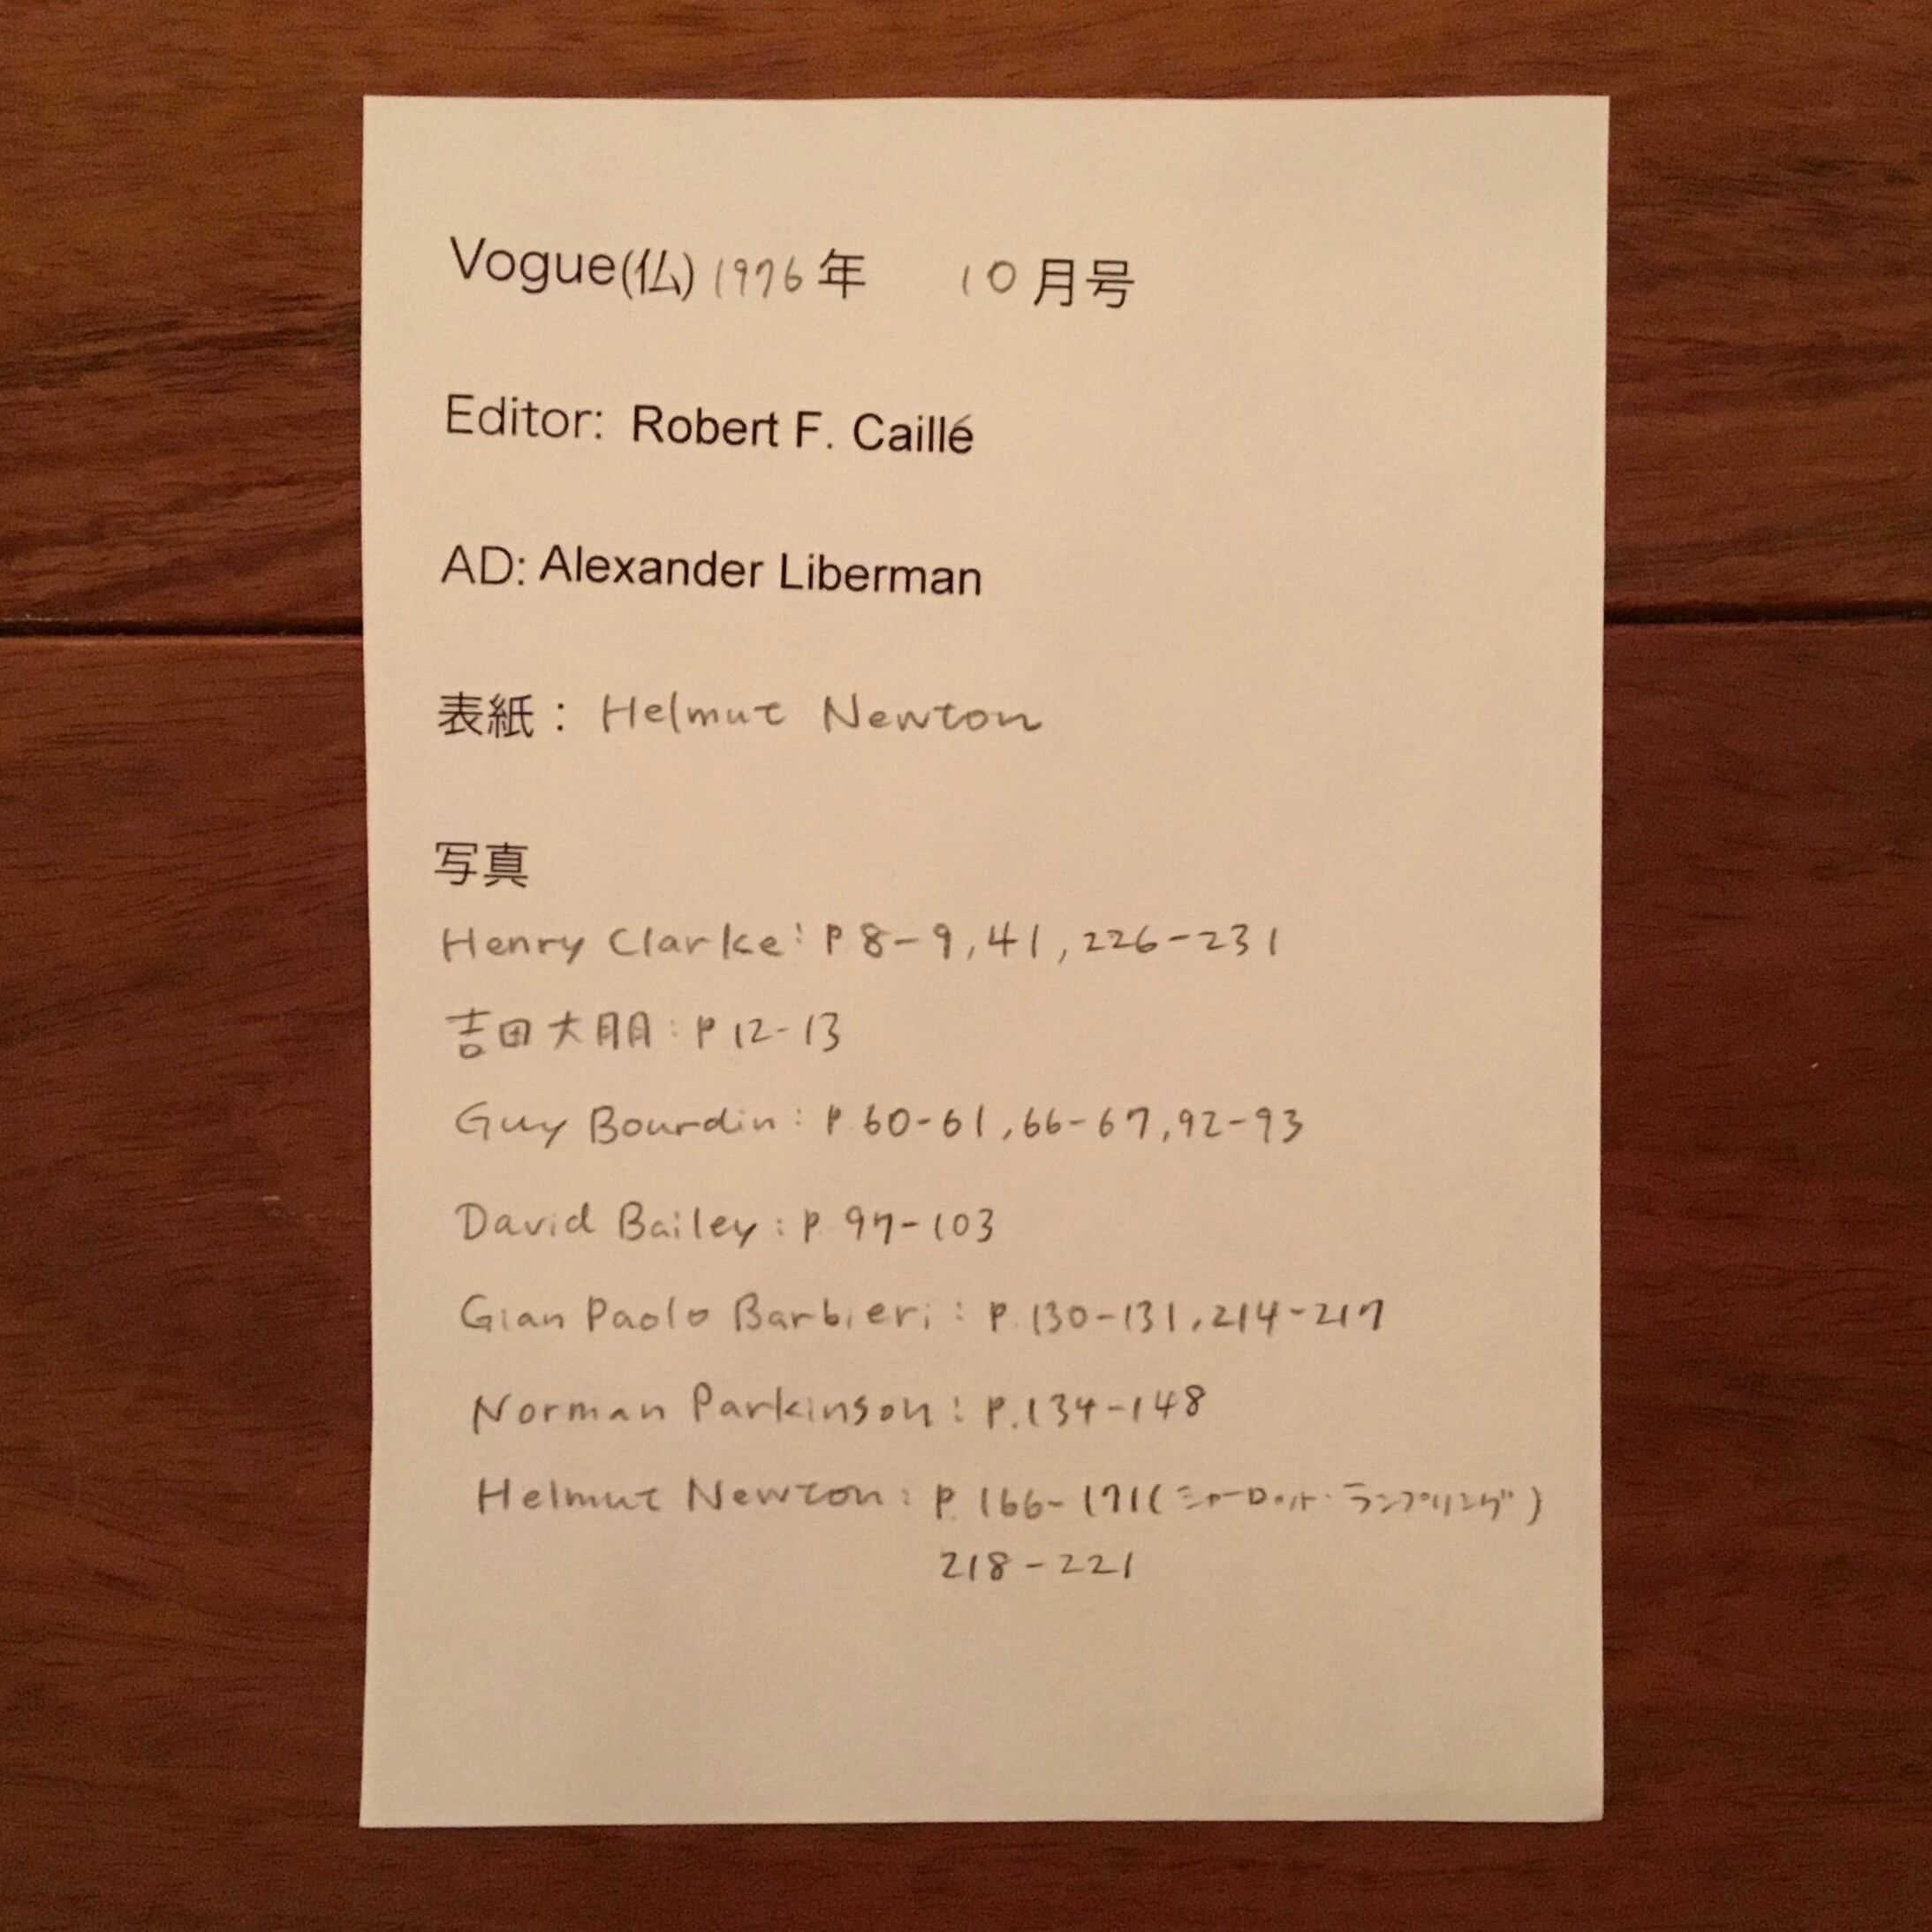 Vogue(仏) 1976年 10月号
Editor: Robert F. Caillé
AD: Alexander Liberman
表紙: Helmut Newton
写真
Henry Clarke: P 8-9, 41, 226-231
吉田大朋: P 12-13
Guy Bourdin: P. 60-61, 66-67, 92-93
David Bailey: P. 97-103
Gian Paolo Barbieri: P. 130-131, 214-217
Norman Parkinson: P. 134-148
Helmut Newton: P. 166-171(シャーロット・ランプリング)
218-221